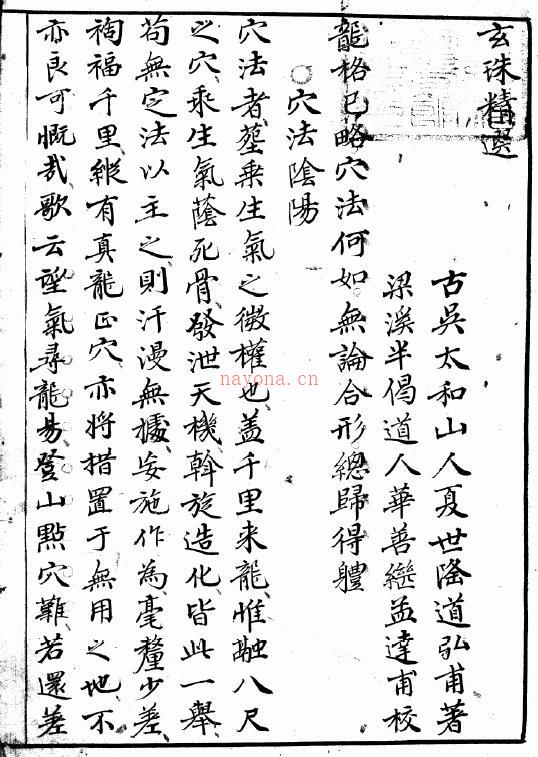 玄珠精選
古吳太和山人夏世隆道弘甫著
梁溪半偈道人華善繼孟達甫校
龍格已略穴法何如無論合形總歸得體
○穴法陰陽
穴法者塟乘生氣之微權也盖千里来龍惟融八尺
之穴乘生氣蔭死骨發泄天機斡旋造化皆此一舉
苟無定法以主之則汗漫無據妄施作為毫釐少差
禍福千里縱有真龍正穴亦將措置于無用之地不
亦良可慨㢤歌云望氣尋龍易登山點穴難若還差
nayona.cn